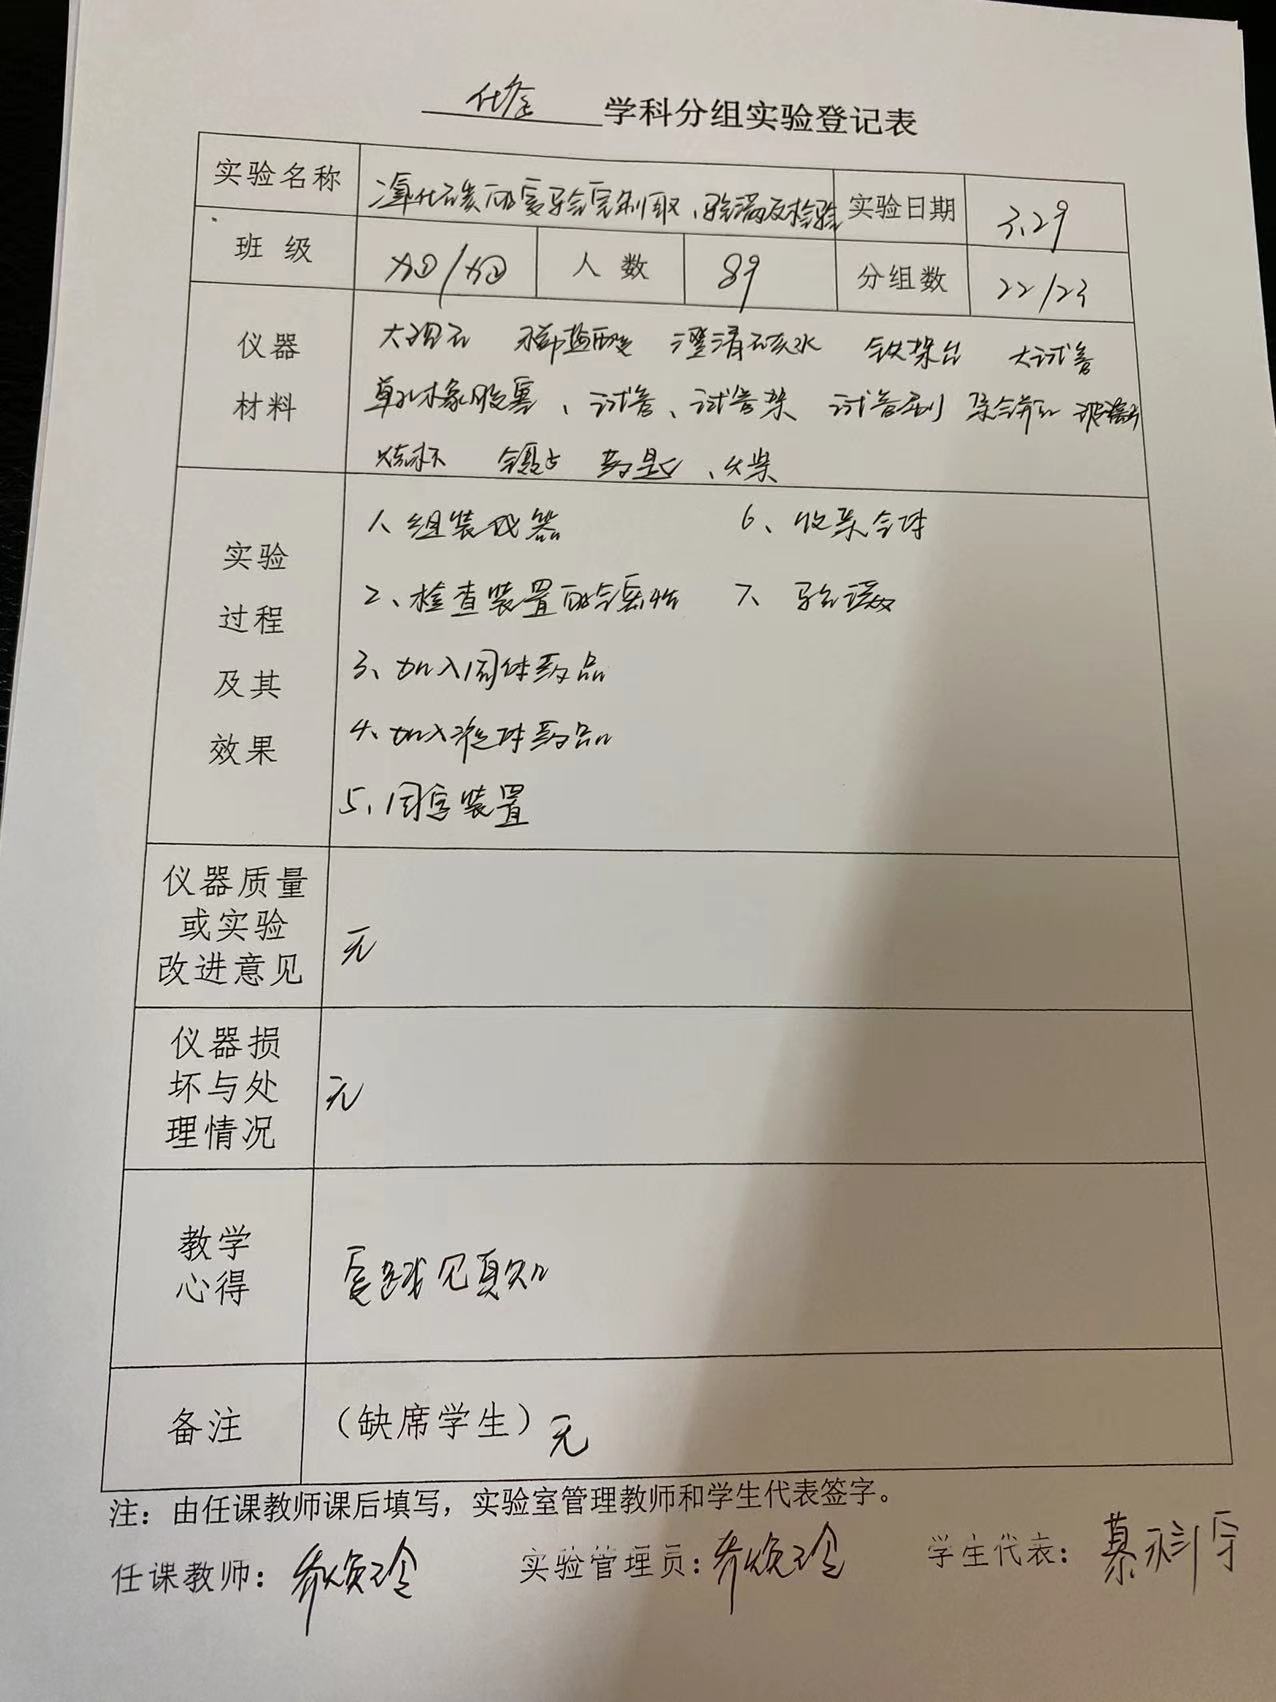 化学 学科分组实验登记表
实验名称 二氧化碳的实验室制取、验满及检验 实验日期 3.29
班级 人数 89 分组数 22/23
仪器材料 大理石 稀盐酸 澄清石灰水 铁架台 大试管
单孔橡胶塞、试管、试管架 试管刷 集气瓶 玻璃片
烧杯 镊子 药匙、火柴
实验过程及其效果
1、组装仪器 6、收集气体
2、检查装置的气密性 7、验满
3、加入固体药品
4、加入液体药品
5、固定装置
仪器质量或实验改进意见 无
仪器损坏与处理情况 无
教学心得 实践见真知
备注 (缺席学生) 无
注：由任课教师课后填写，实验室管理教师和学生代表签字。
任课教师： 实验管理员： 学生代表：